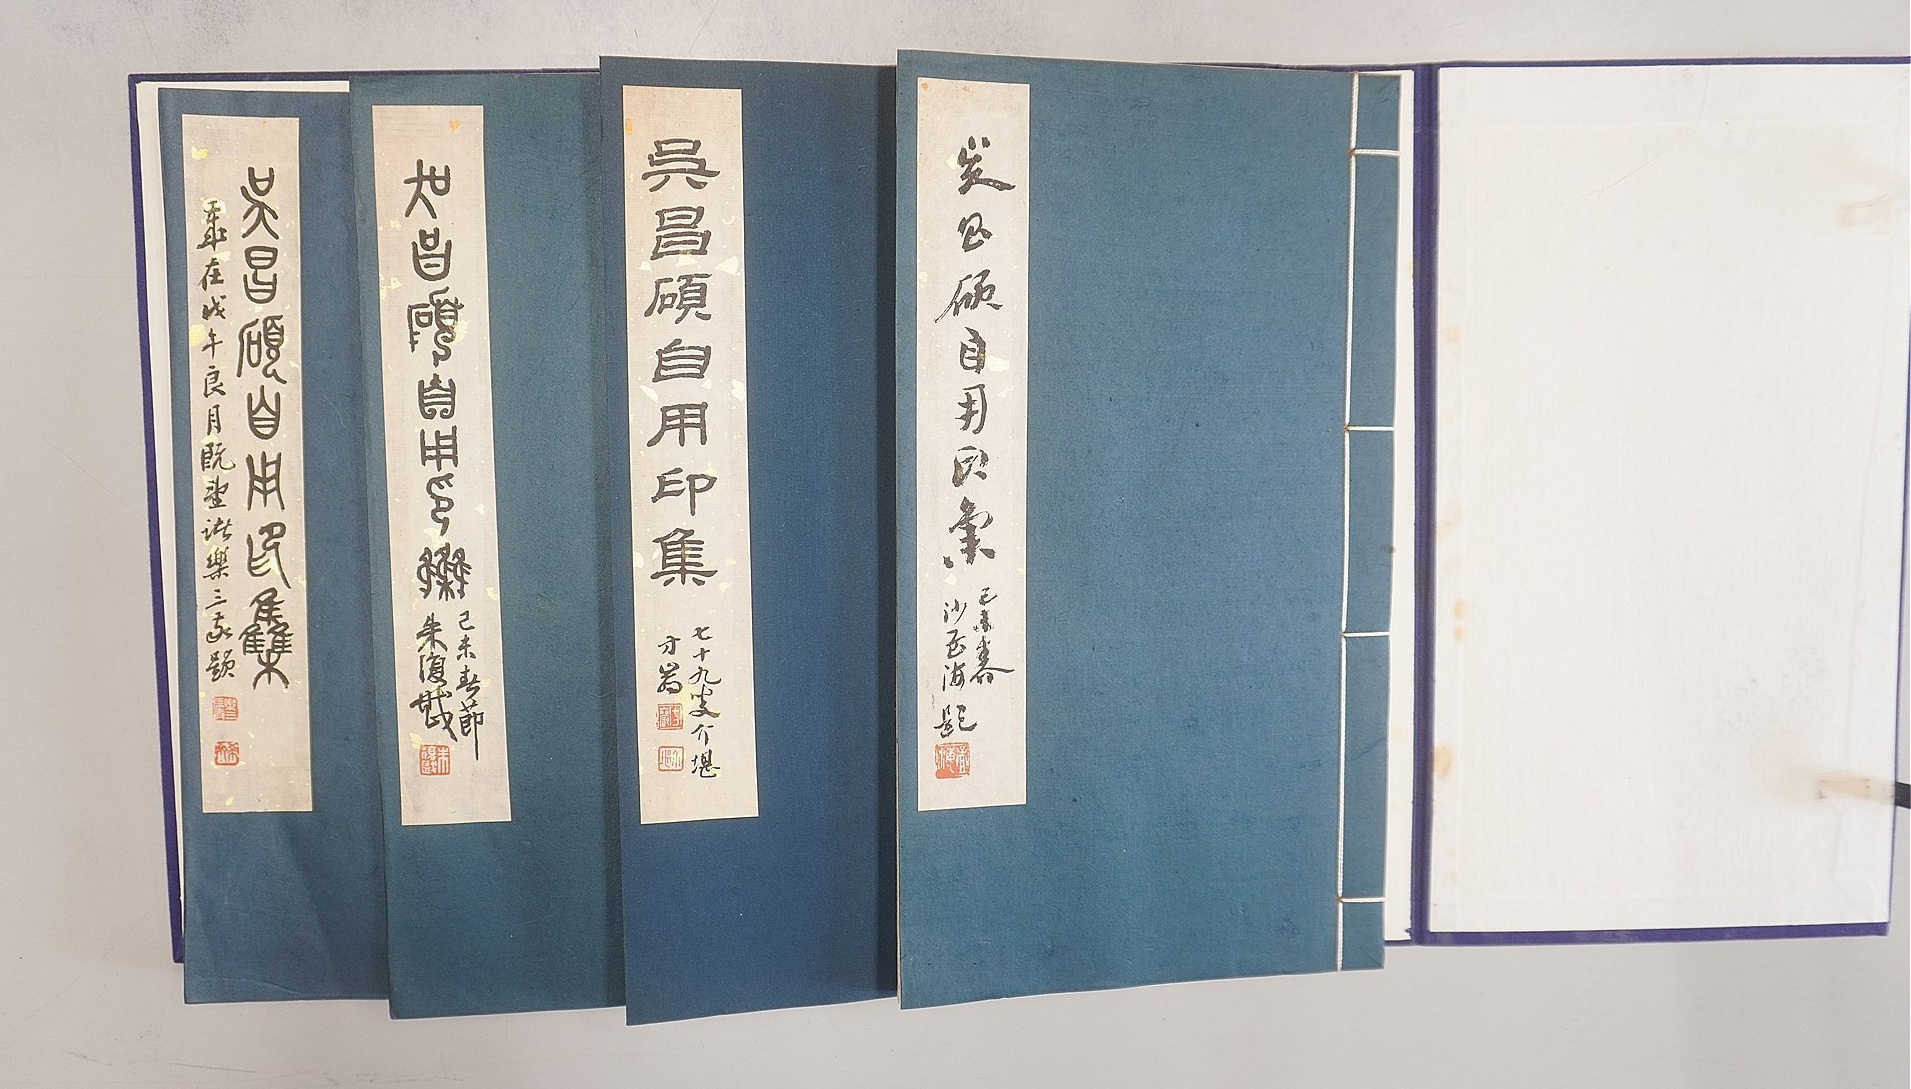 吳昌碩自用印集
己未春仲
沙孟海題
吳昌碩自用印集
七十九叟介堪
方嵒
吳昌碩自用印集
己未春節
朱復戡
吳昌碩自用印集
歲在戊午良月既望諸樂三敬題